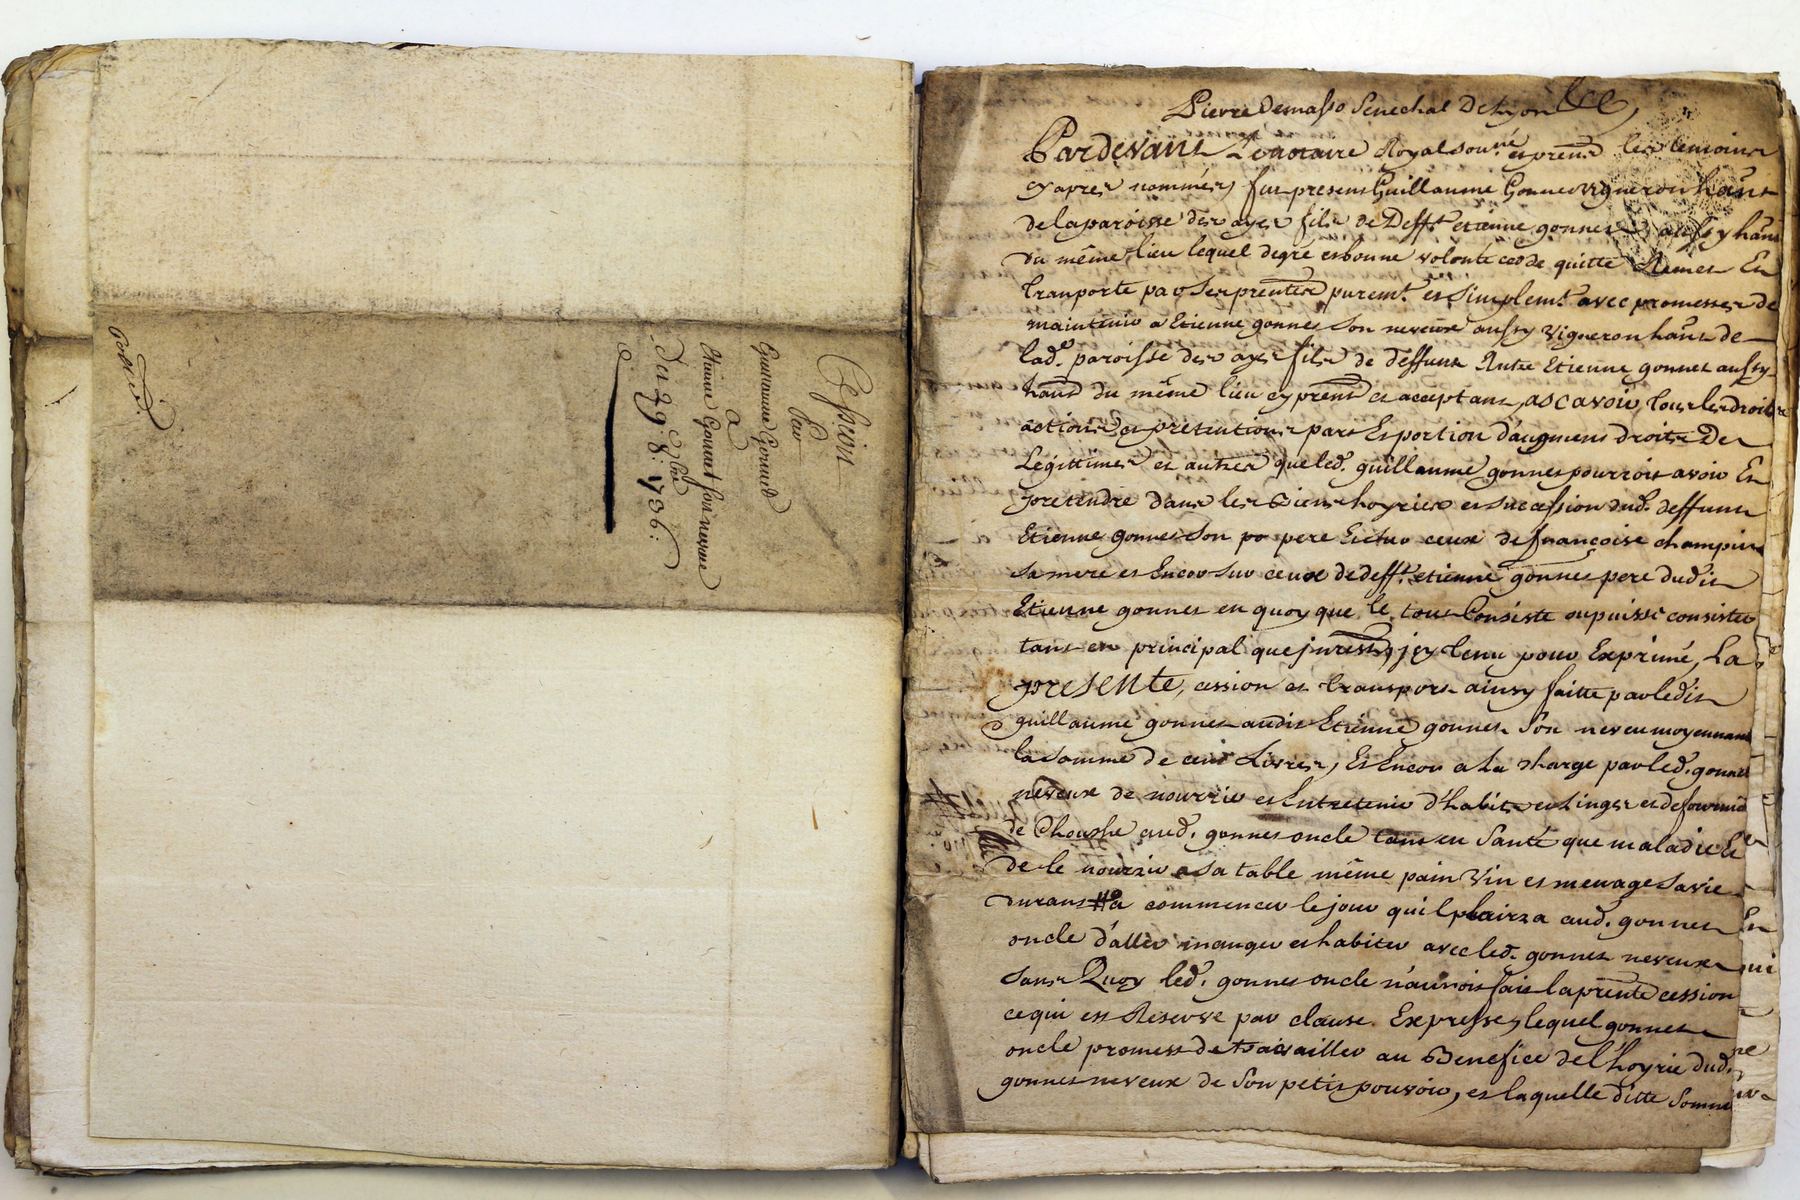 Cession
Par
Guillaume Gonnet
a
Etienne Gonnet son neveue
Du 29 8bre 1736
Pierre Demasso Senechal De Lyon &ca
Pardevant Le notaire Royal sous.né et presnt les temoins
cy apres nommés fut present Guillaume Gonnet vigneron hant
de la paroisse des ayes fils de Defft etienne gonnet aussy hant
du même lieu lequel de gre et bonne volonté cedde quitte Remet Et
tranporte par Ses presentes puremt et Simplemt avec promesses de
maintenir a Etienne gonnet son neveux aussy vigneron hant de
lade paroisse des ayes fils de deffunt Autre Etienne gonnet aussy
hant du même lieu cy presnt et acceptant, ascavoir, tous les droits
actions et pretentions part Et portion d'augment droits De
Legittimes et autres que led. guillaume gonnet pourroit avoir Et
pretendre dans les Biens hoyries et succession dud. deffunt
Etienne gonnet son pere Et sur ceux de françoise champin
sa mere et Encor sur ceux de defft etienne gonnet pere dudit
Etienne gonnet en quoy que le tout Consiste ou puisse consister
tant en principal que jnterests jcy tenu pour Exprimé, La
presente, cession et transport ainsy faitte par ledit
guillaume gonnet audit Etienne gonnet Son neveu moyennant
la somme de cent Livres, Et Encor a La charge par led. gonnet
neveux de nourrir et Entretenir d'habits et linges et de fournir
de Chausse aud. gonnet oncle tant en Santé que maladie Et
de le nourrir a sa table même pain vin et menage sa vie
durant a commencer le jour qu'il plairra aud. gonnet
oncle d'aller manger et habiter avec led. gonnet neveux
sans Quoy led. gonnet oncle n'auroit fait la presnte cession
ce qui est Reservé par clause Expresse, lequel gonnet
oncle promest de travailler au Benefice de l'hoyrie dud.
gonnet neveux de Son petit pouvoir, et laquelle ditte Somme